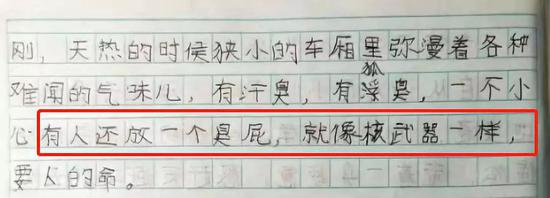 刚，天热的时侯狭小的车厢里弥漫着各种
难闻的气味儿，有汗臭，有狐臭，一不小
心有人还放一个臭屁，就像核武器一样，
要人的命。